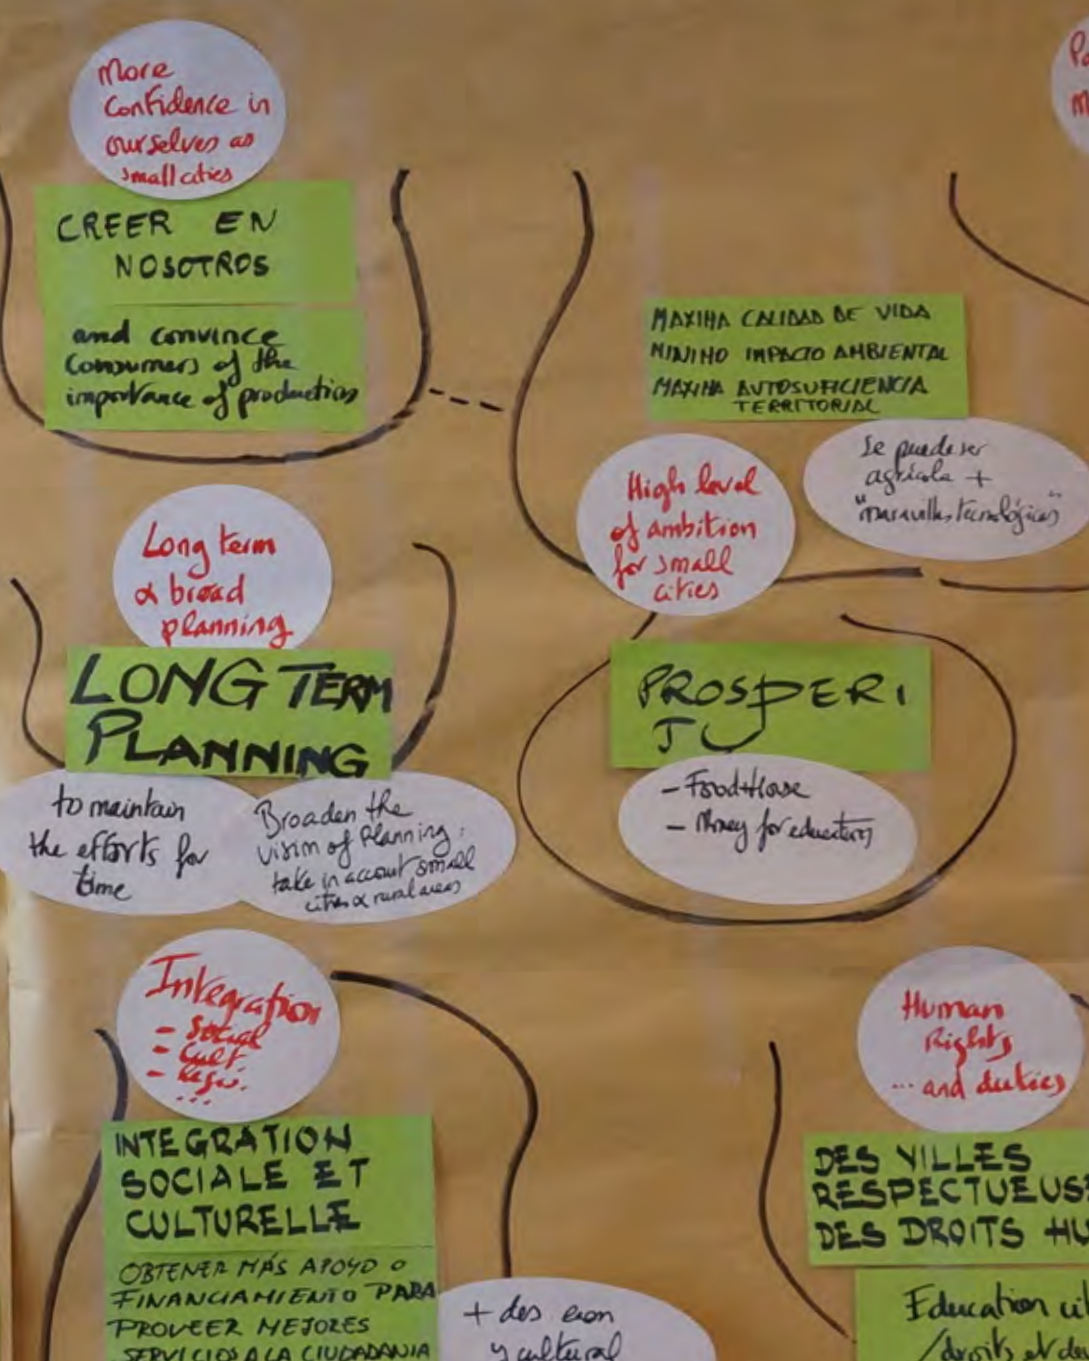 More
Confidence in
ourselves as
small cities
CREER EN
NOSOTROS
and convince
Consumers of the
importance of production
MAXIMA CALIDAD DE VIDA
MINIMO IMPACTO AMBIENTAL
MAXIMA AUTOSUFICIENCIA
TERRITORIAL
High level
of ambition
for small
cities
Se puede ser
agrícola +
"maravillas tecnológicas"
Long term
& broad
planning
LONG TERM
PLANNING
to maintain
the efforts for
time
Broaden the
vision of Planning:
take in account small
cities & rural areas
PROSPERI
TY
- Food+House
- Money for education
Integration
- Social
- Cult.
...
INTEGRATION
SOCIALE ET
CULTURELLE
OBTENER MÁS APOYO O
FINANCIAMIENTO PARA
PROVEER MEJORES
SERVICIOS A LA CIUDADANIA
+ des econ
y cultural
Human
Rights
... and duties
DES VILLES
RESPECTUEUSE
DES DROITS HU
Education cit
/droits et de